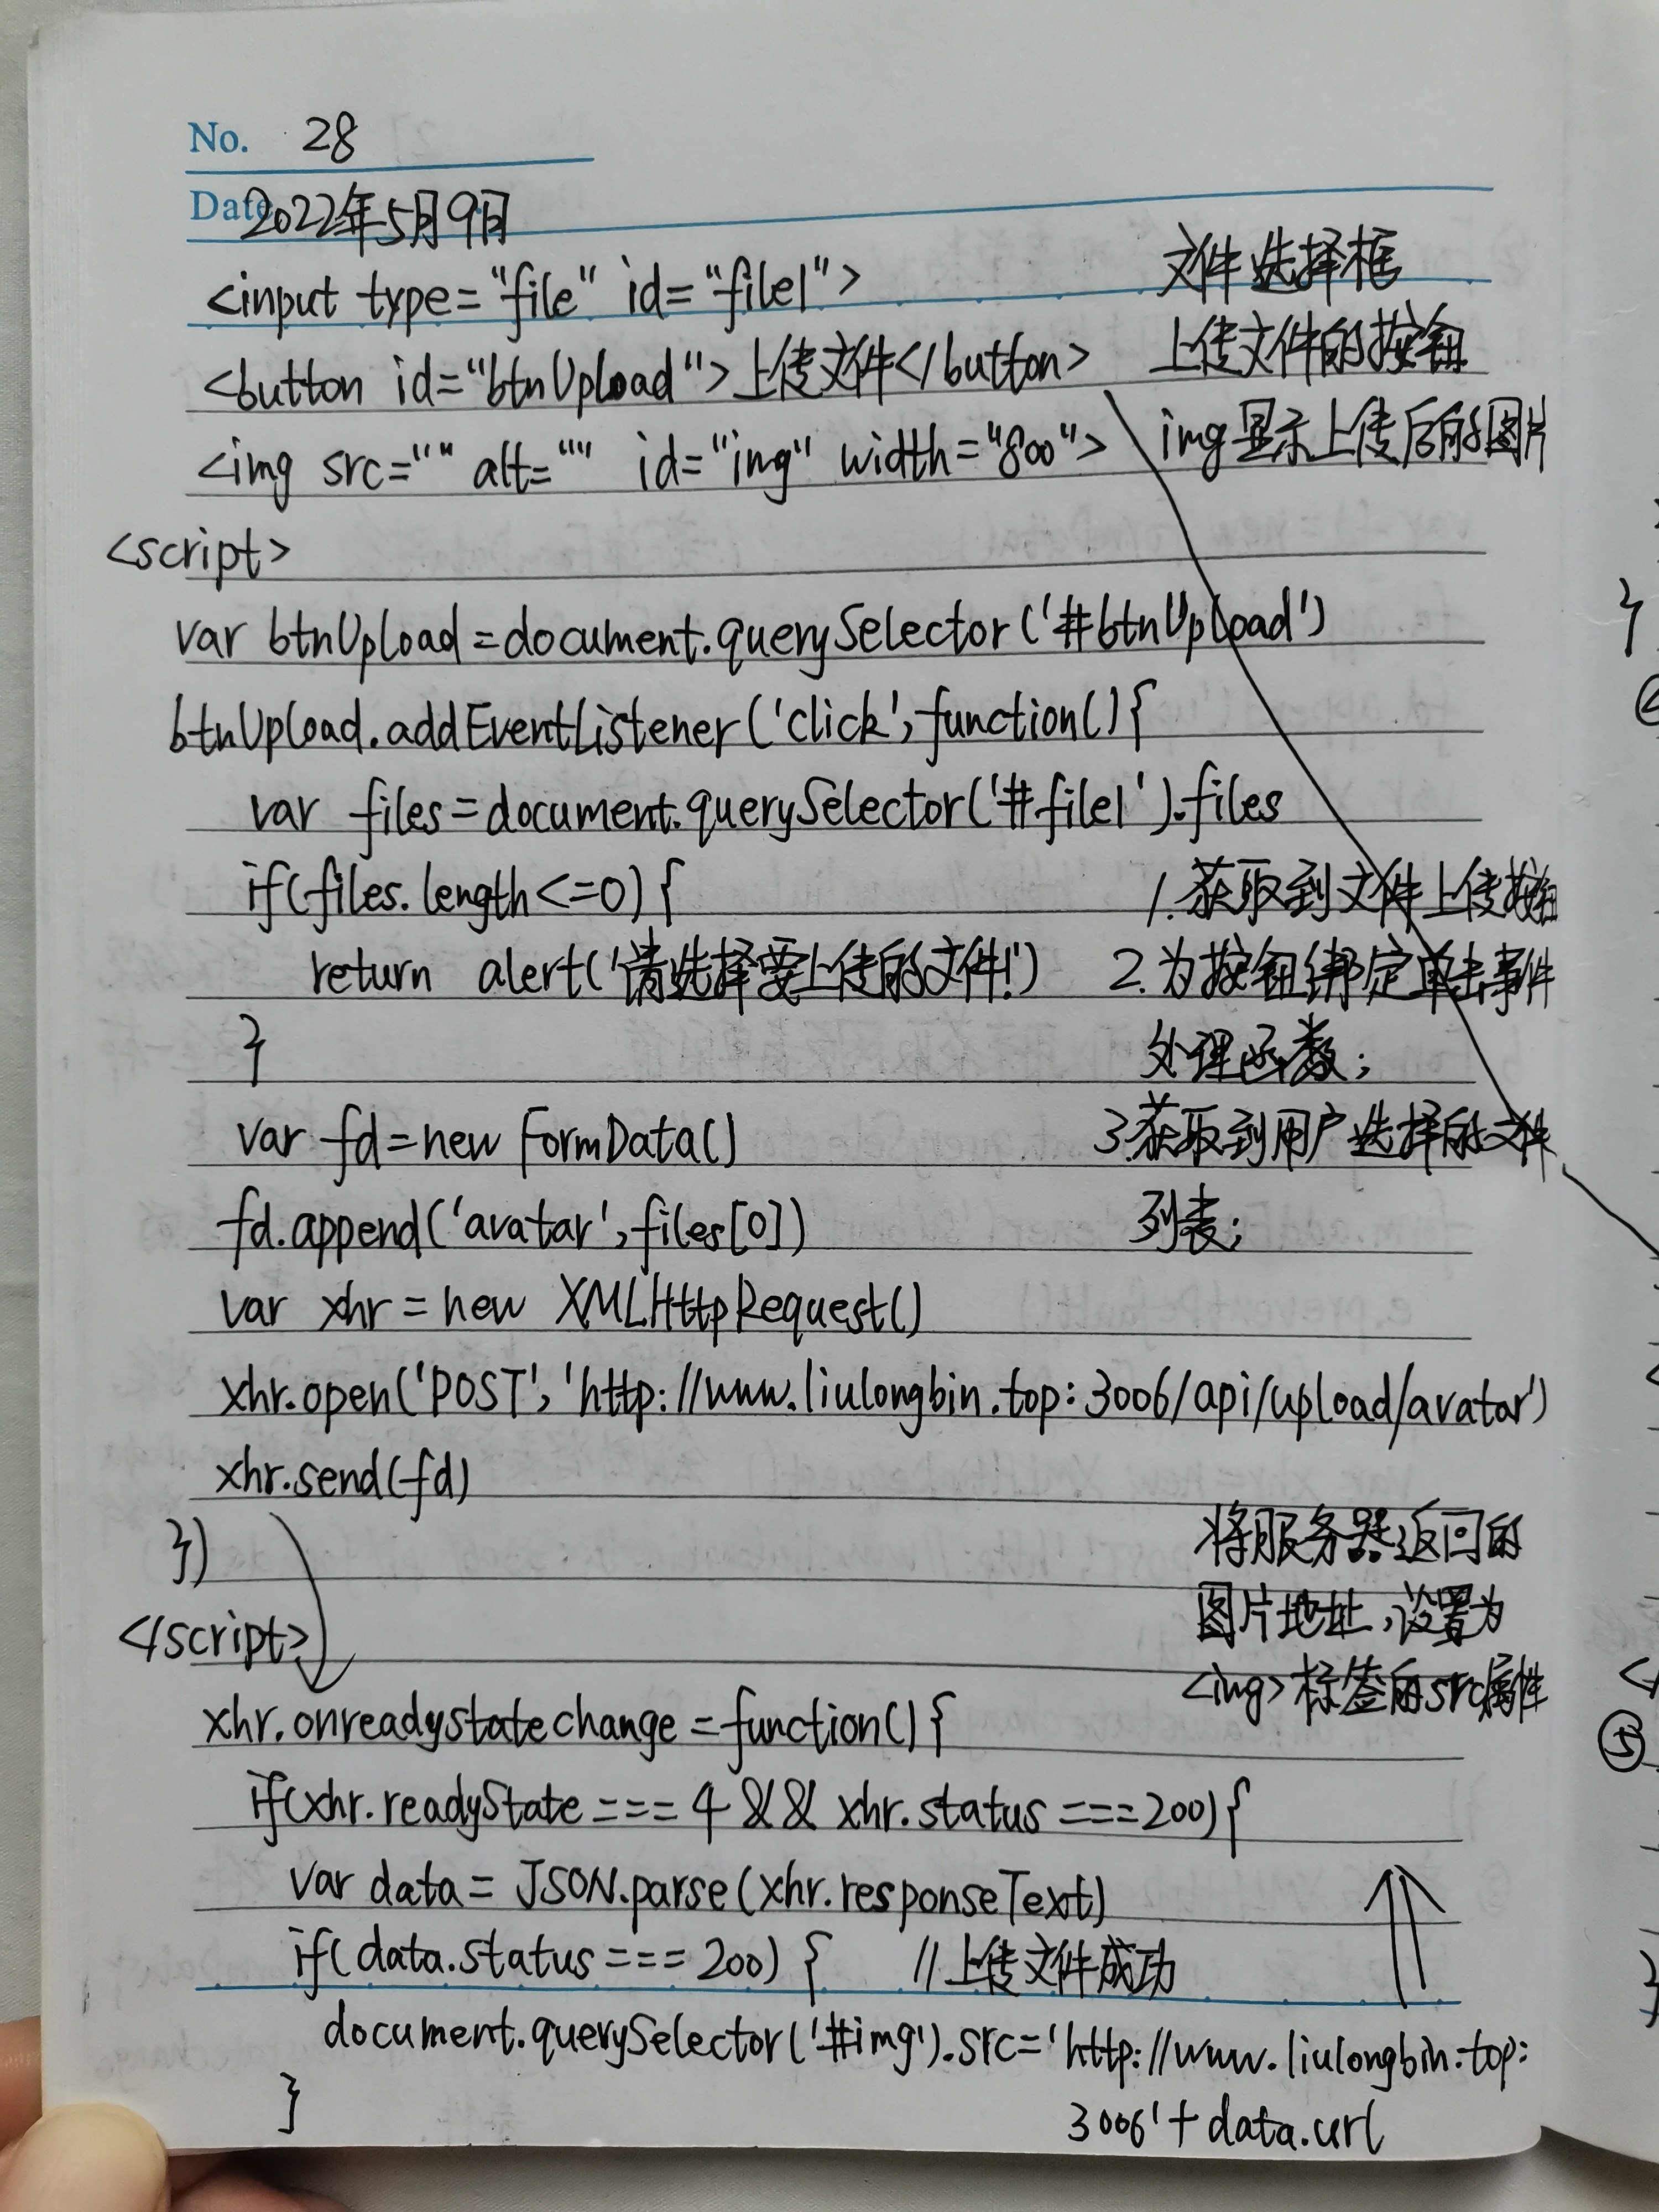 No. 28
Date 2022年5月9日
<input type="file" id="file1"> 文件选择框
<button id="btnUpload">上传文件</button> 上传文件的按钮
<img src="" alt="" id="img" width="800"> img显示上传后的图片
<script>
var btnUpload=document.querySelector('#btnUpload')
btnUpload.addEventListener('click',function(){
var files=document.querySelector('#file1').files
if(files.length<=0){ 1.获取到文件上传按钮
return alert('请选择要上传的文件!') 2.为按钮绑定单击事件
} 处理函数;
var fd=new FormData() 3.获取到用户选择的文件
fd.append('avatar',files[0]) 列表;
var xhr=new XMLHttpRequest()
xhr.open('POST','http://www.liulongbin.top:3006/api/upload/avatar')
xhr.send(fd)
}) 将服务器返回的
</script> 图片地址,设置为
<img>标签的src属性
xhr.onreadystatechange=function(){
if(xhr.readyState===4&&xhr.status===200){
var data=JSON.parse(xhr.responseText)
if(data.status===200){ //上传文件成功
document.querySelector('#img').src='http://www.liulongbin.top:
} 3006'+data.url
}
④
</
⑤
}